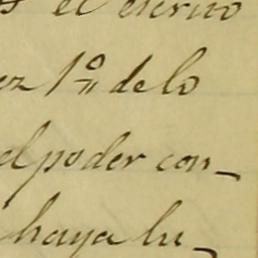 el escrito
ez 1º de lo
el poder con-
haya lu-